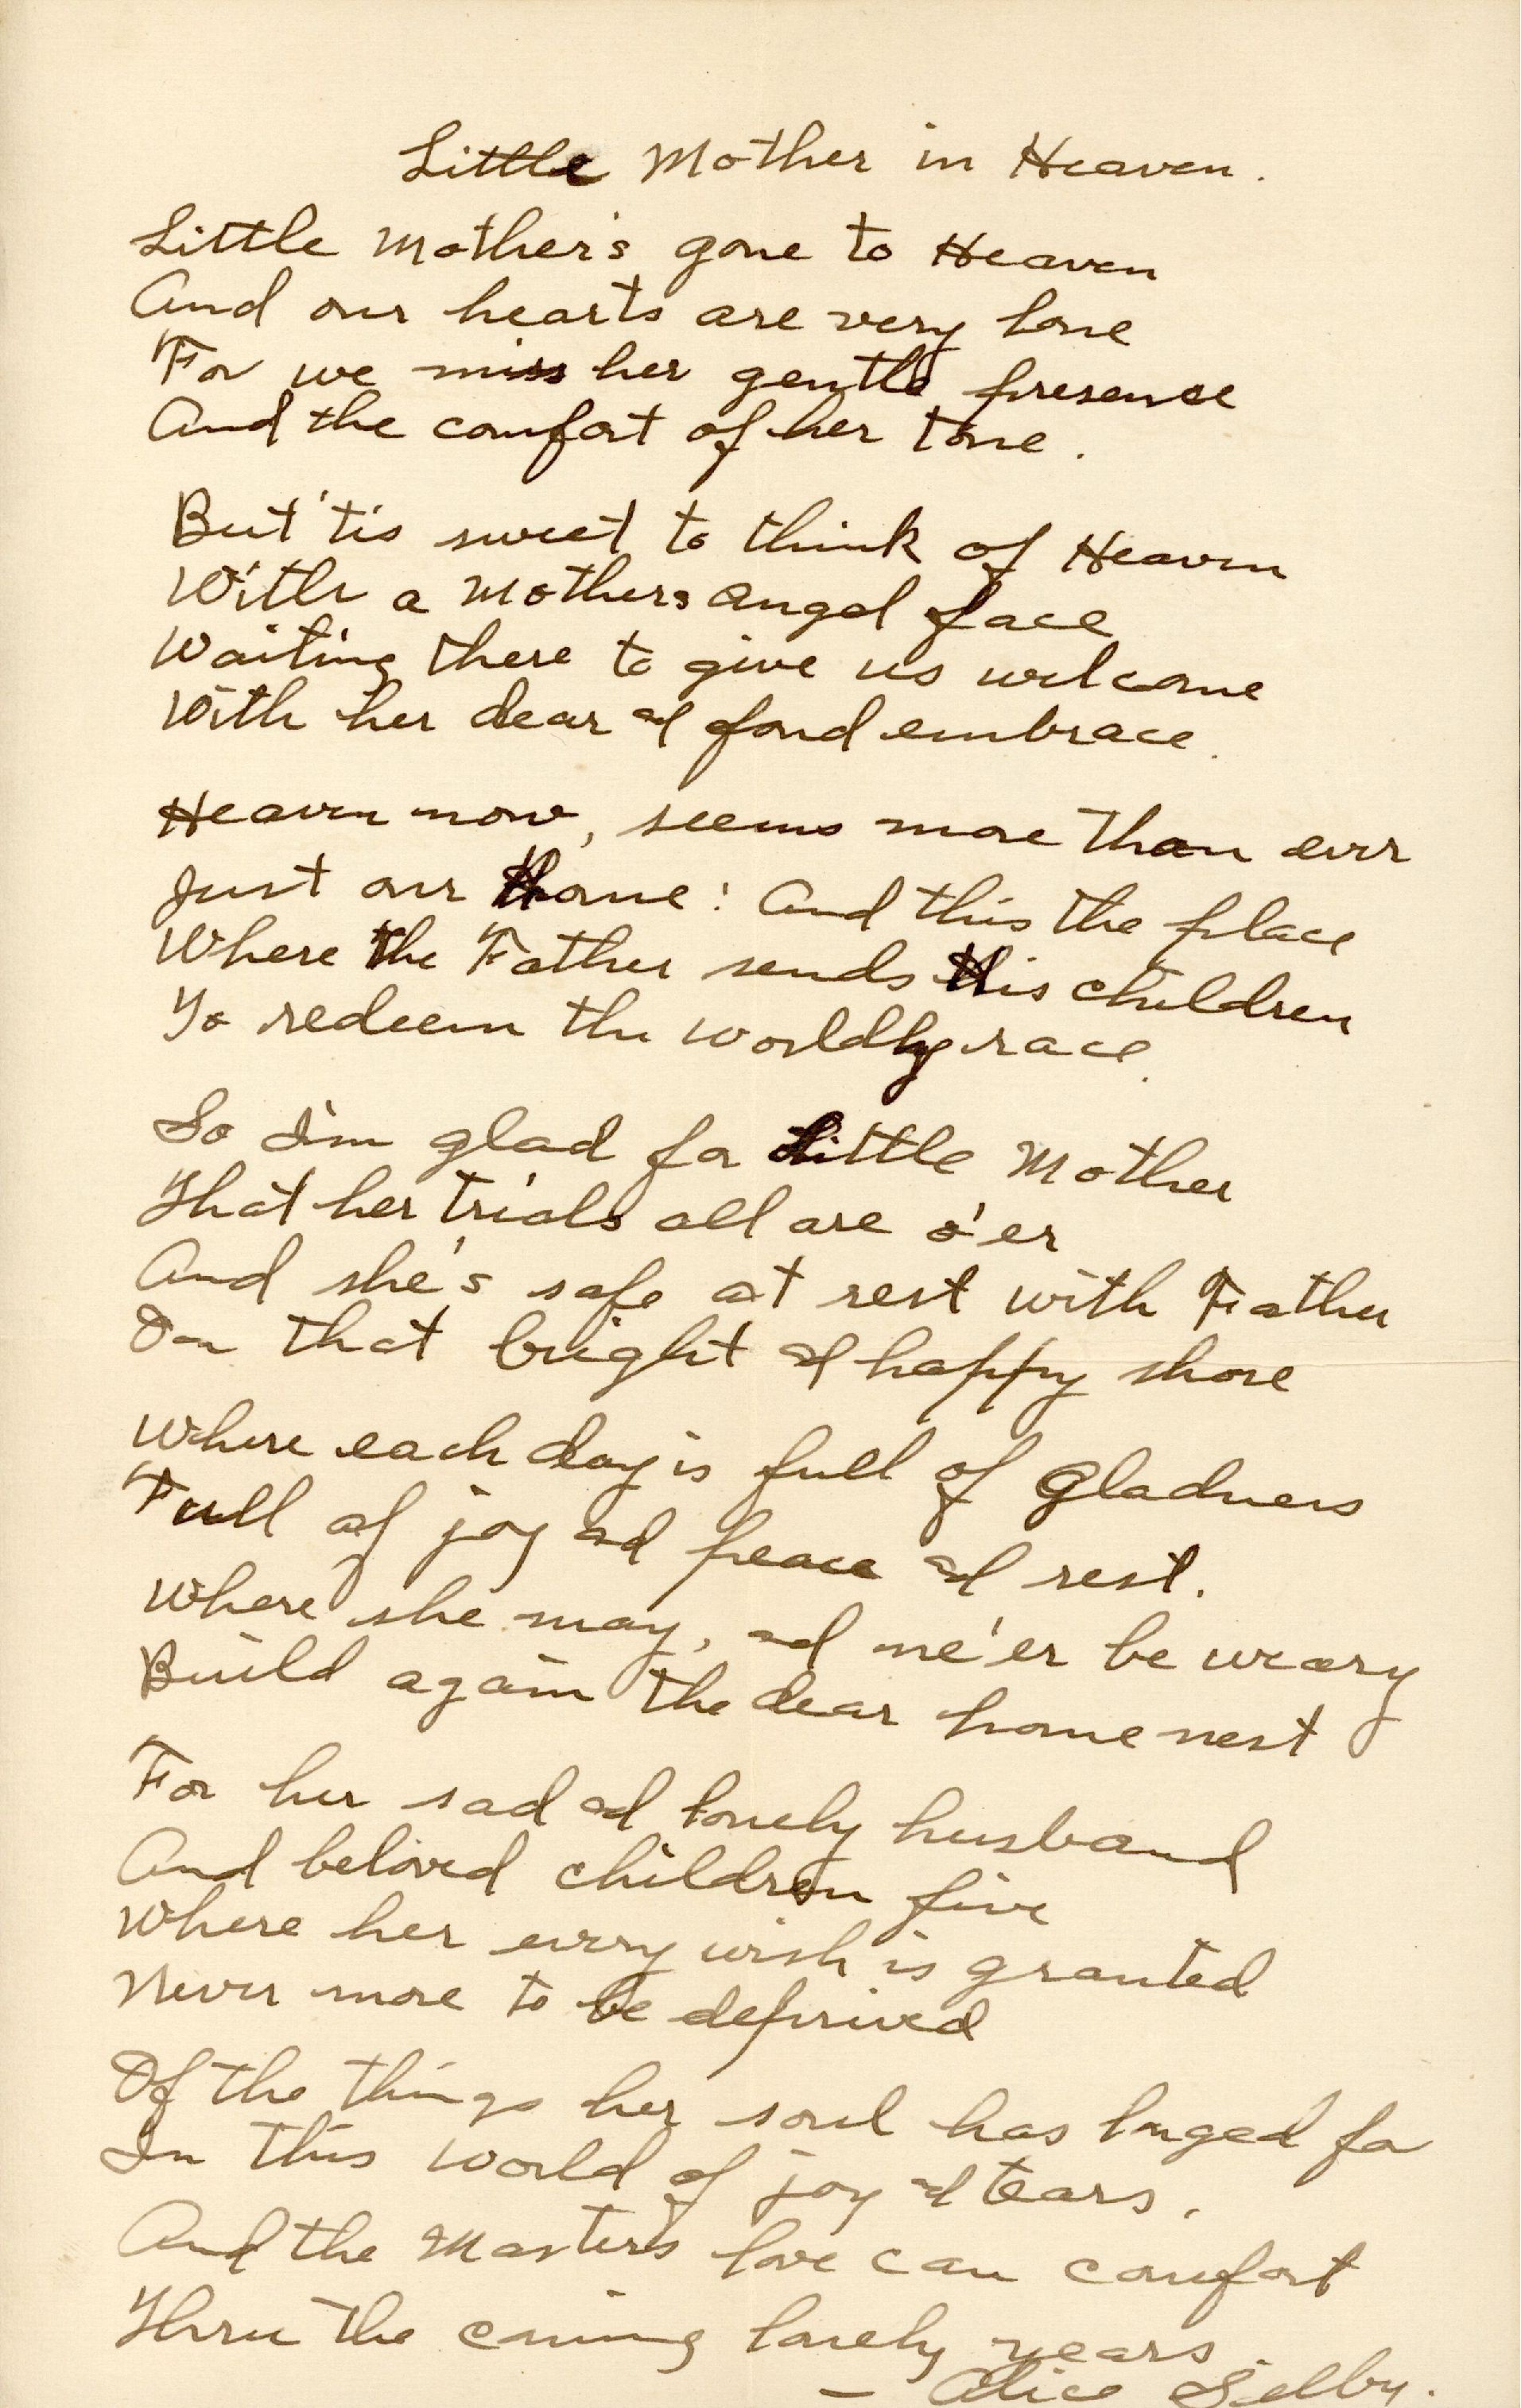 Little Mother in Heaven.
Little Mother's gone to Heaven
And our hearts are very lone
For we miss her gentle presence
And the comfort of her tone.
But 'tis sweet to think of Heaven
With a Mothers angel face
Waiting there to give us welcome
With her dear and fond embrace.
Heaven now, seems more than ever
Just our Home: And this the place
Where the Father sends His children
To redeem the worldly race.
So I'm glad for Little Mother
That her trials all are o'er
And she's safe at rest with Father
On that bright and happy shore
Where each day is full of gladness
Full of joy and peace and rest.
Where she may, and ne'er be weary
Build again the dear home nest
For her sad and lonely husband
And beloved children five
Where her every wish is granted
Never more to be deprived
Of the things her soul has longed for
In this world of joy and tears.
And the Masters love can comfort
Thru the coming lonely years
— Alice Selby.